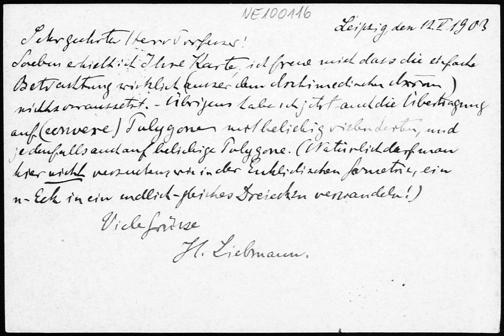 NE100116
Leipzig den 12.V.1903
Sehr geehrter Herr Professor!
Soeben erhielt ich Ihre Karte, ich freue mich dass die einfache
Betrachtung wirklich (ausser dem Archimedischen Axiom)
nichts voraussetzt. – Übrigens habe ich jetzt auch die Übertragung
auf (convexe) Polygone mit beliebig vielen Seiten, und
jedenfalls auch auf beliebige Polygone. (Natürlich darf man
hier nicht versuchen, wie in der Euklidischen Geometrie, ein
n-Eck in ein endlich-gleiches Dreieck zu verwandeln!)
Viele Grüsse
H. Liebmann.